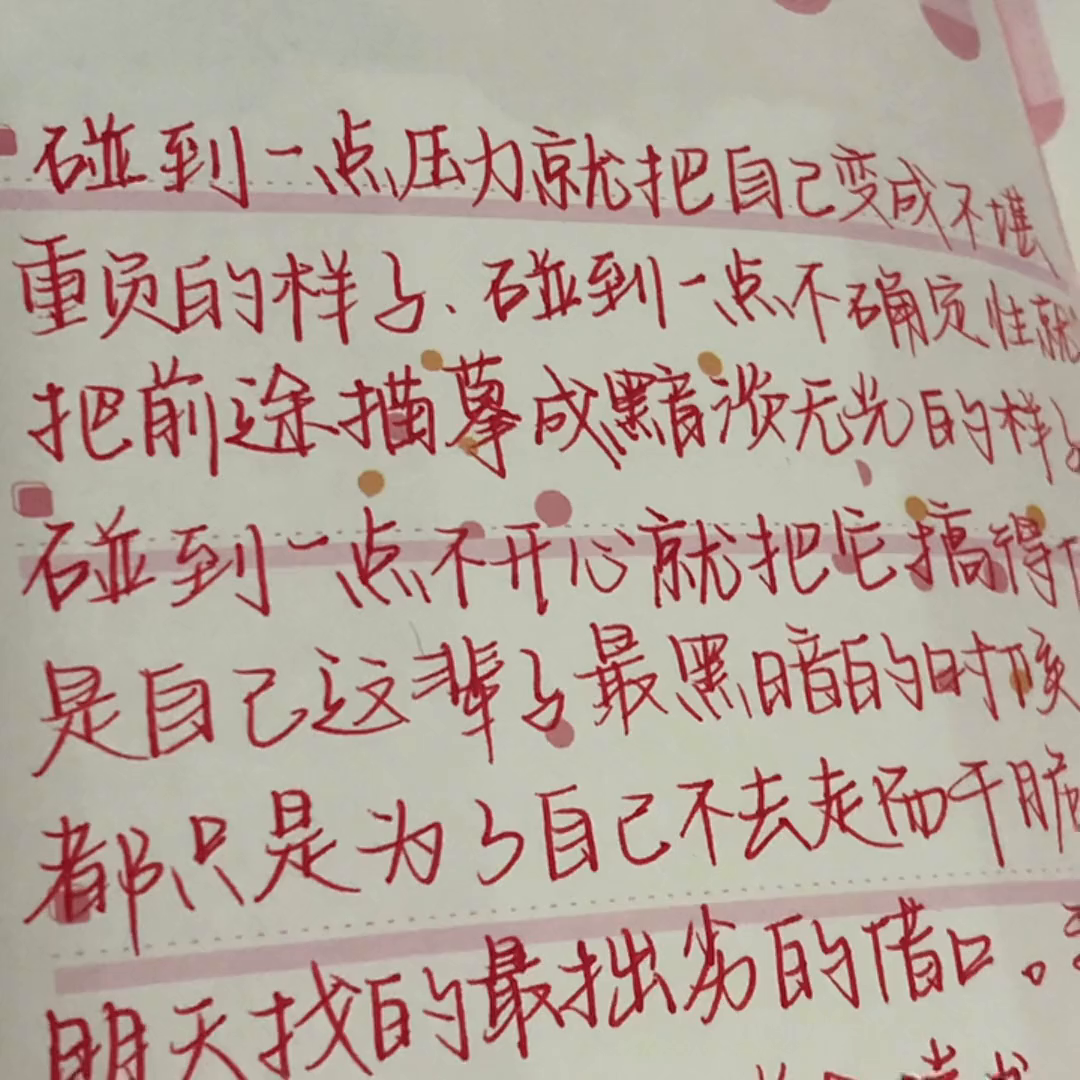 碰到一点压力就把自己变成不堪
重负的样子、碰到一点不确定性就
把前途描摹成黯淡无光的样子
碰到一点不开心就把它搞得
是自己这辈子最黑暗的时候
都只是为了自己不去走而干脆
明天找的最拙劣的借口。